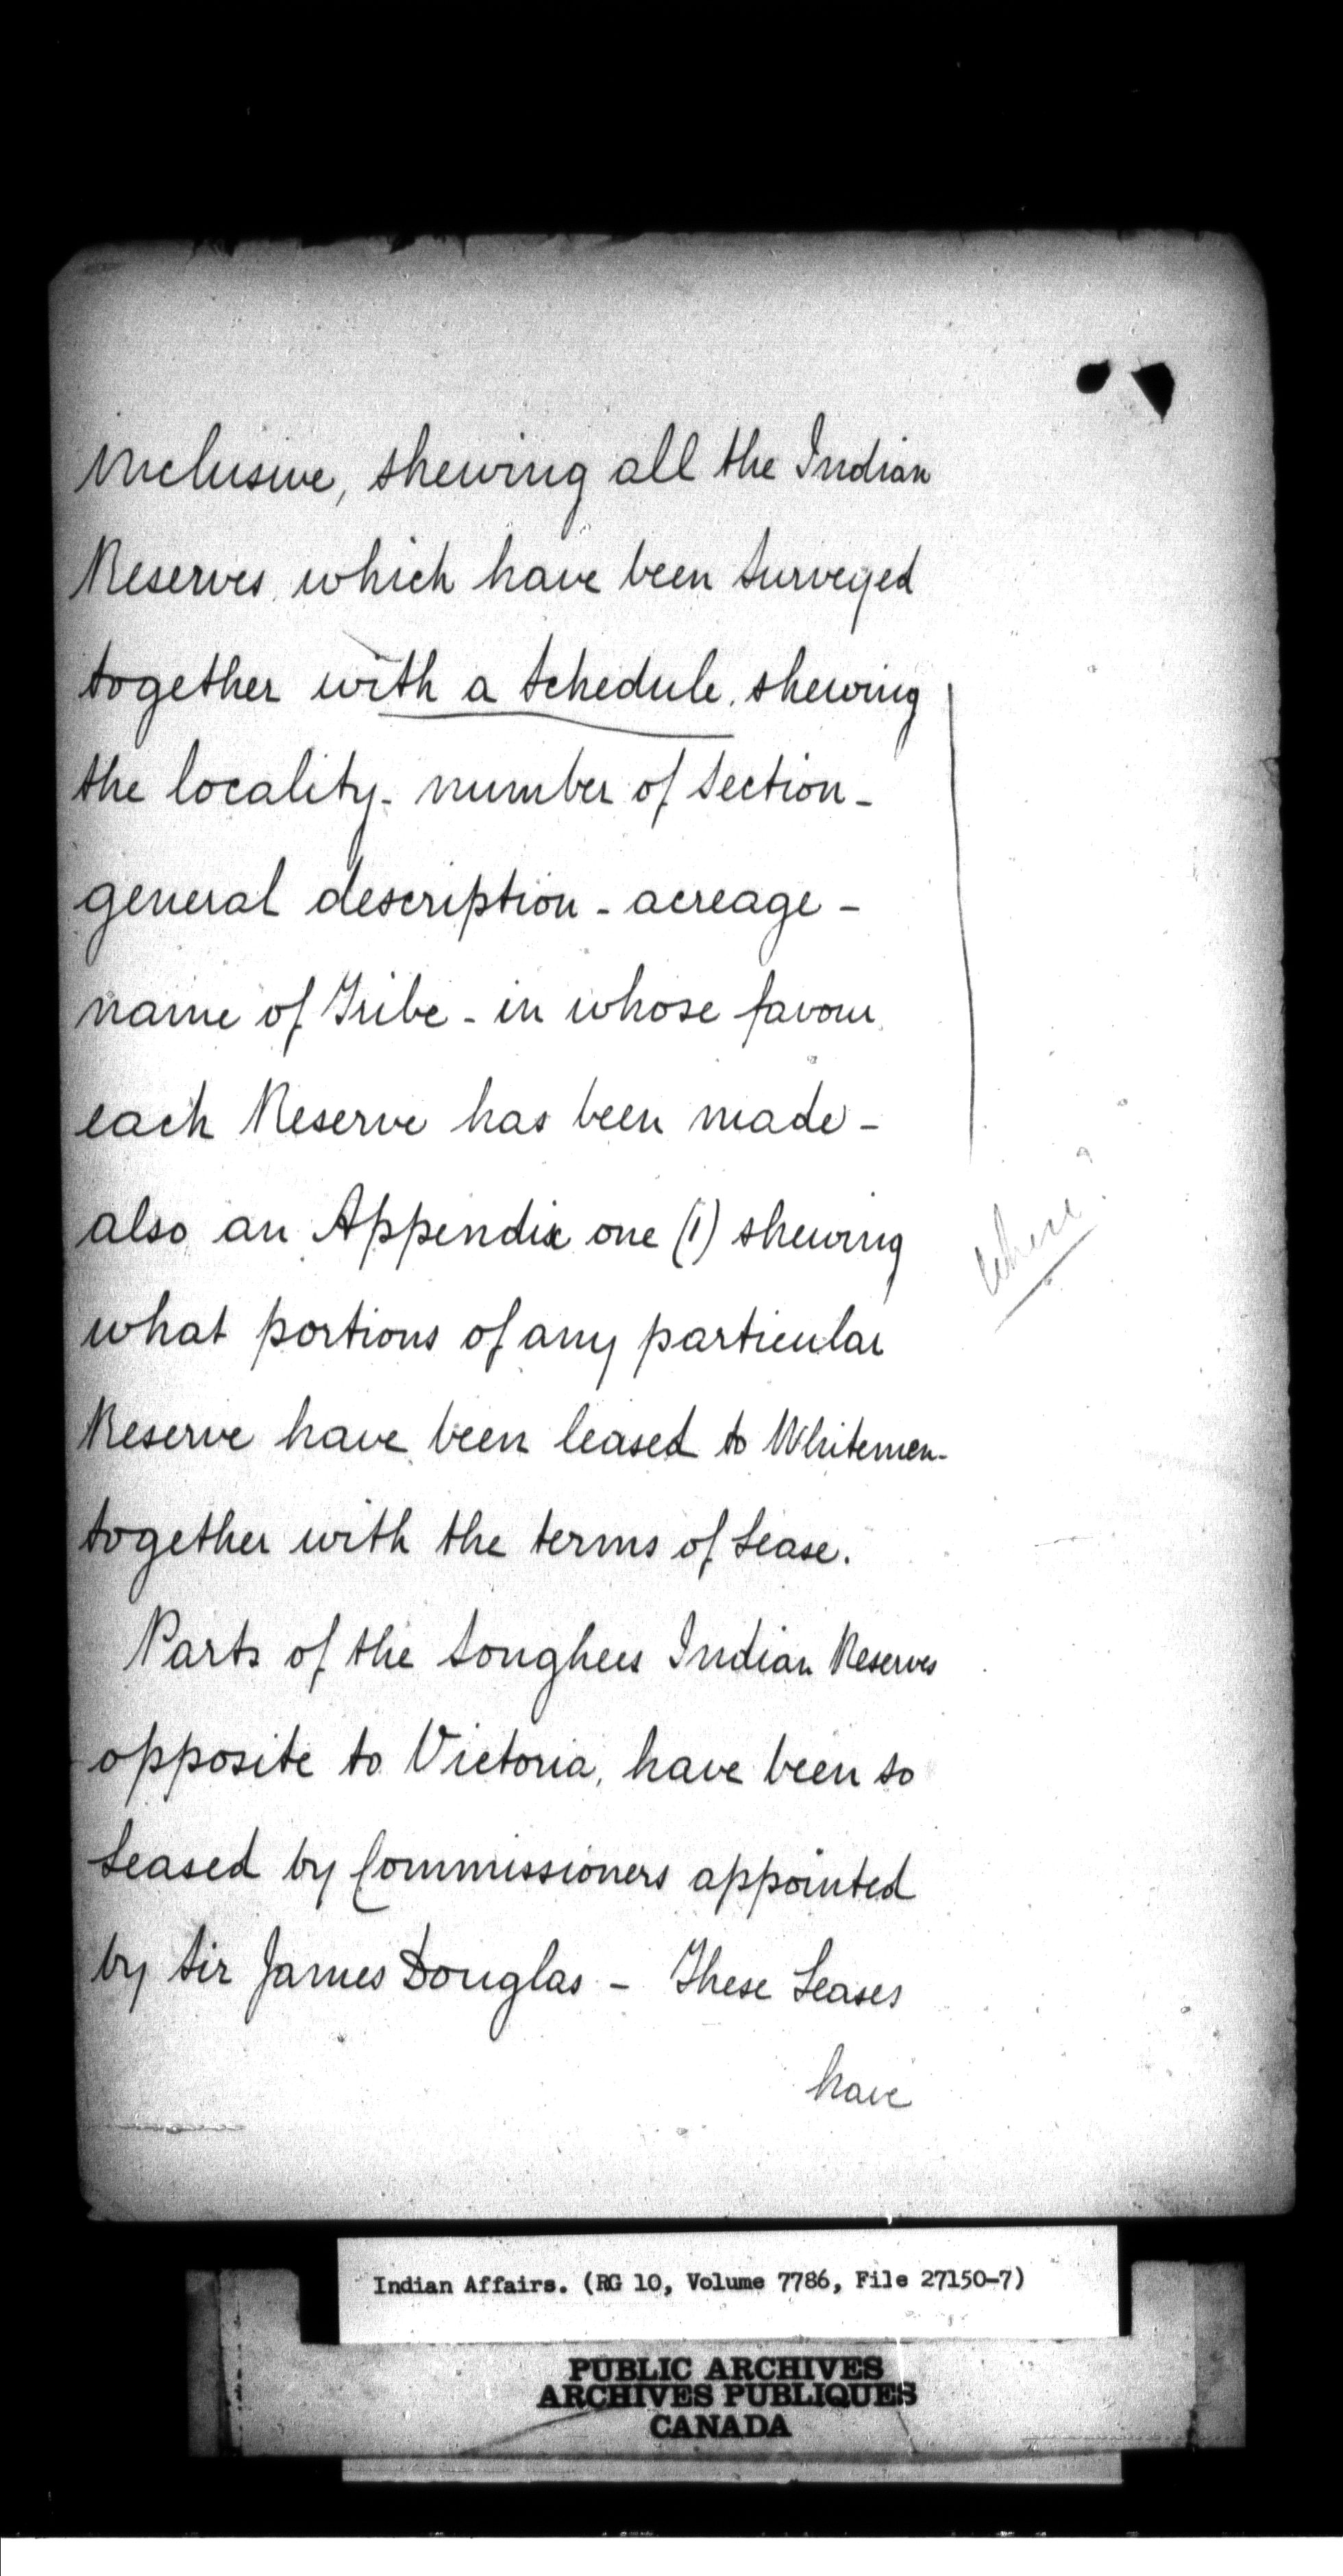 inclusive, shewing all the Indian
Reserves which have been Surveyed
together with a Schedule, shewing
the locality - number of Section -
general description - acreage -
name of Tribe - in whose favour
each Reserve has been made -
also an Appendix one (1) shewing
what portions of any particular
Reserve have been leased to Whitemen -
together with the terms of Lease.
Parts of the Songhees Indian Reserves
opposite to Victoria, have been so
Leased by Commissioners appointed
by Sir James Douglas - These Leases
have
where?
Indian Affairs. (RG 10, Volume 7786, File 27150-7)
PUBLIC ARCHIVES
ARCHIVES PUBLIQUES
CANADA